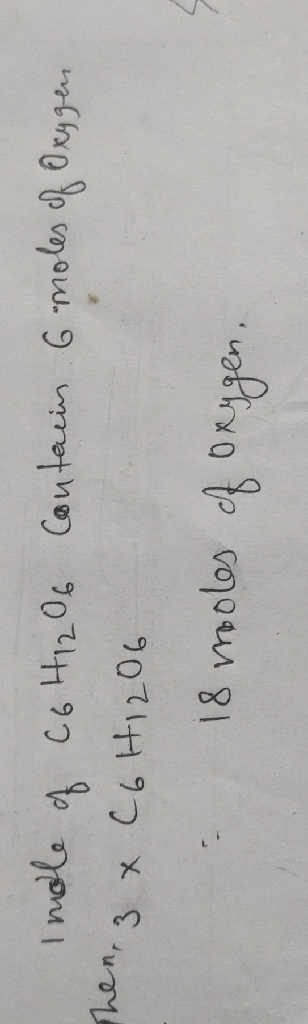 1 mole of C6H12O6 Contains 6 moles of Oxygen
Then, 3 x C6H12O6
∴ 18 moles of oxygen.